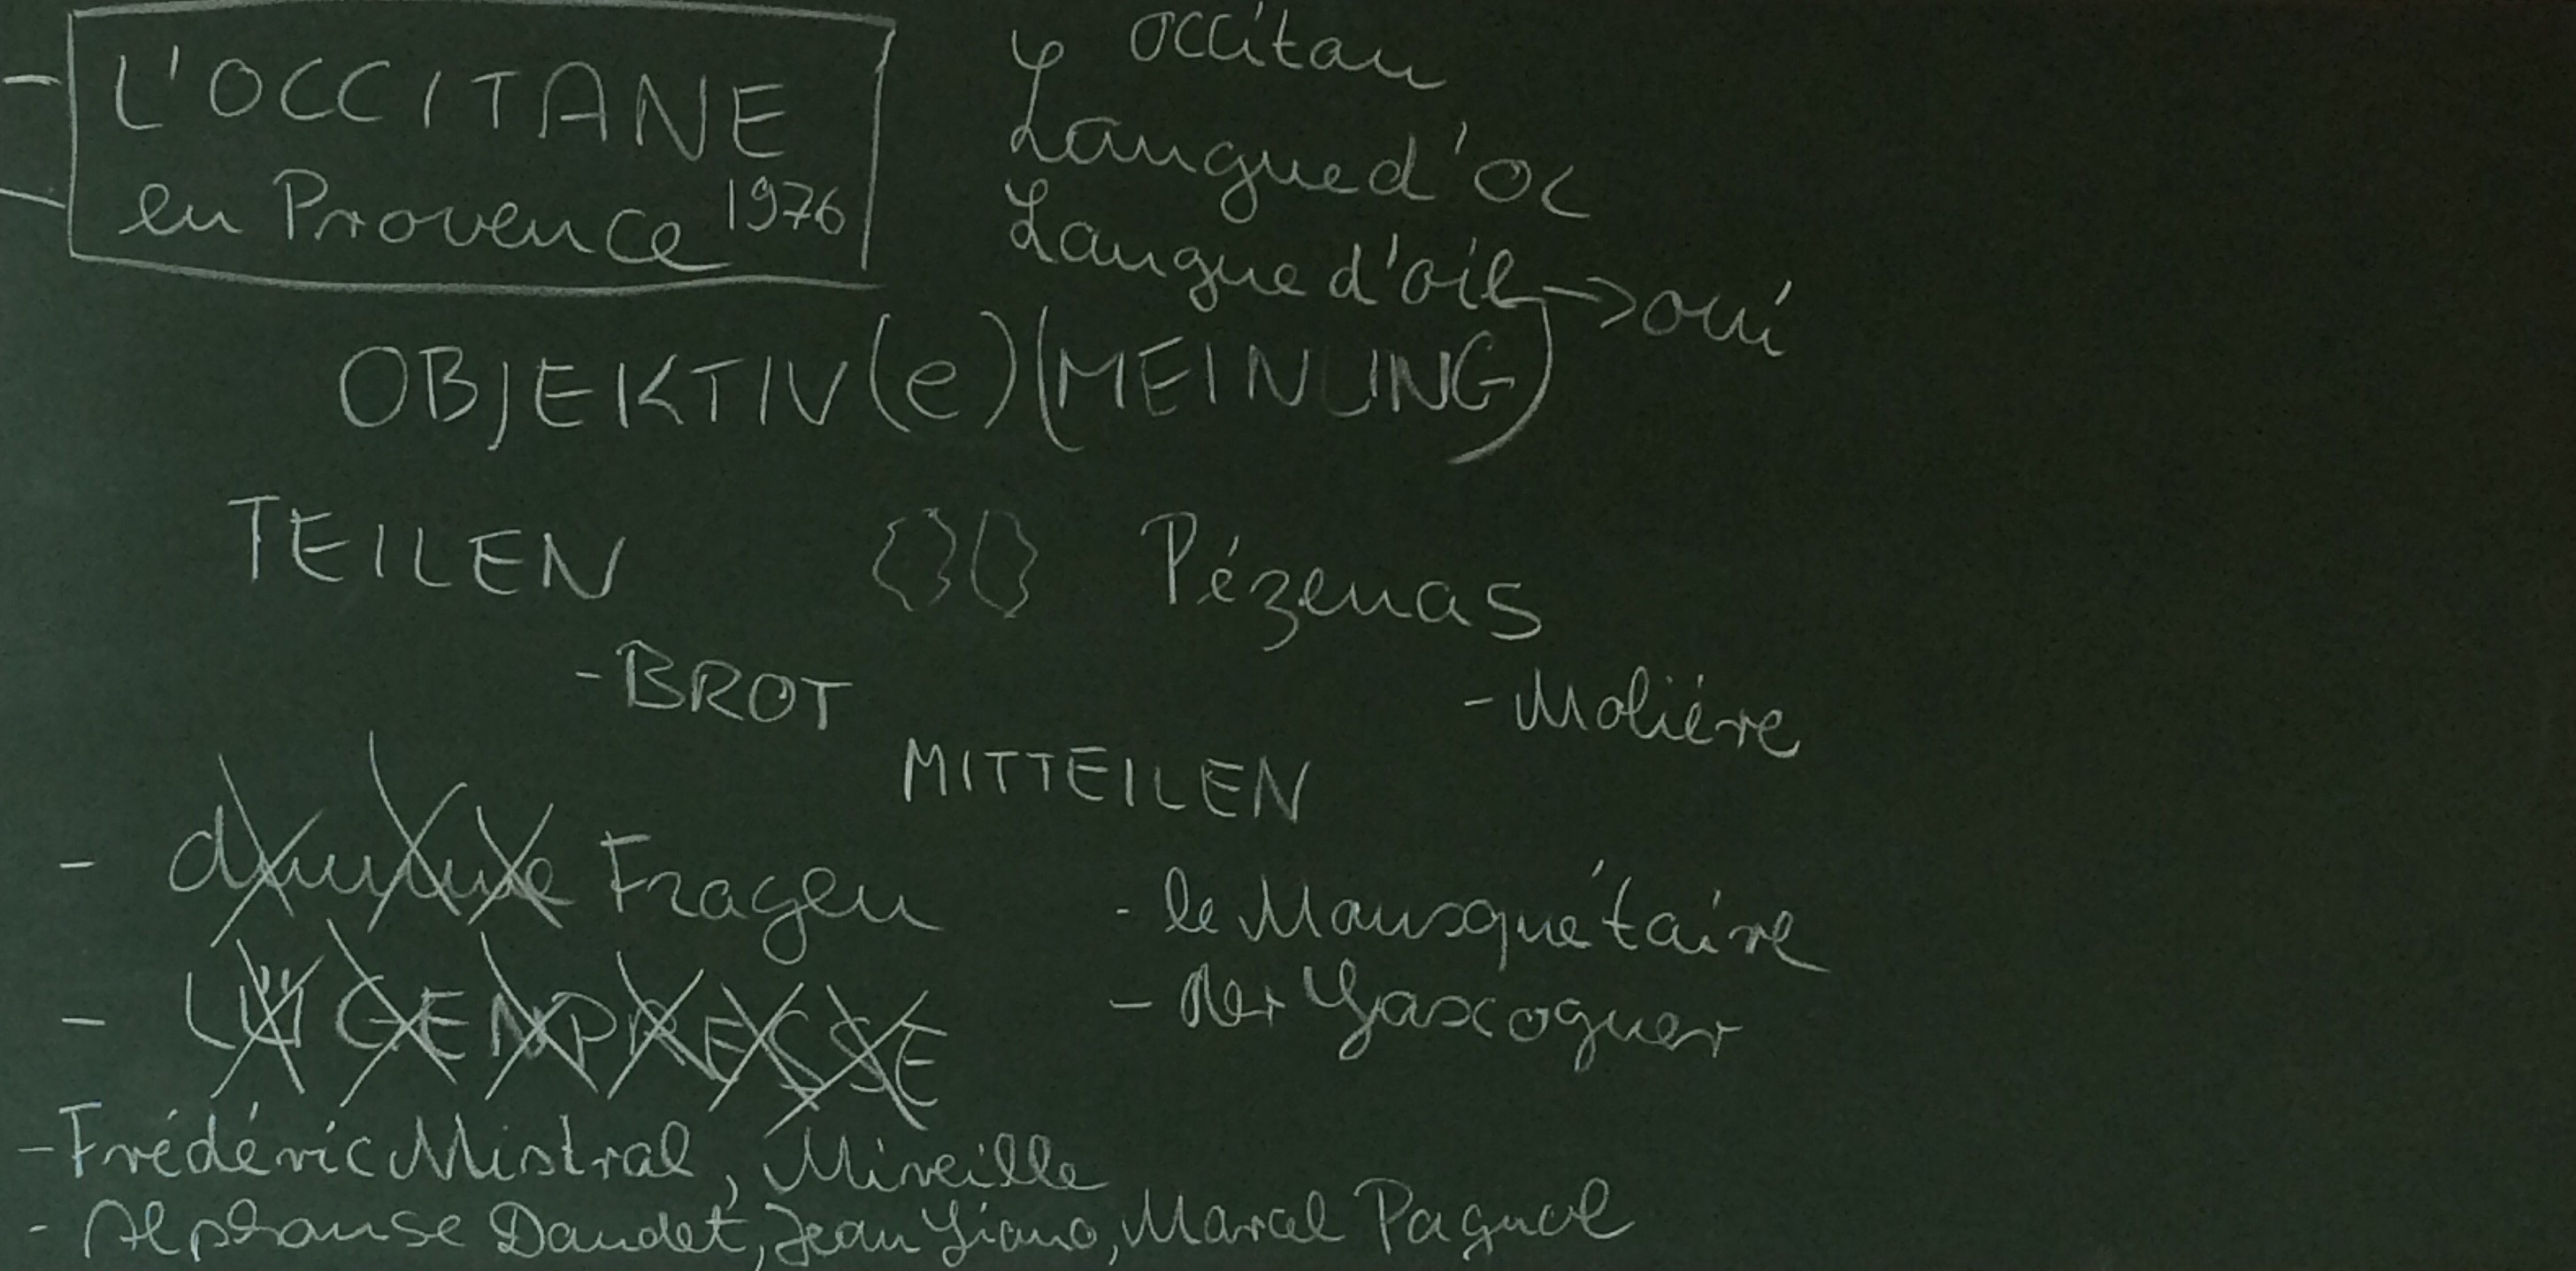 L'OCCITANE
en Provence 1976
occitan
Langue d'oc
Langue d'oïl → oui
OBJEKTIV(e) (MEINUNG)
TEILEN
Pézenas
- BROT
- Moliére
MITTEILEN
- dumme Fragen
- le Mousquétaire
- LÜGENPRESSE
- der Gascogner
- Frédéric Mistral, Mireille
- Alphonse Daudet, Jean Giono, Marcel Pagnol